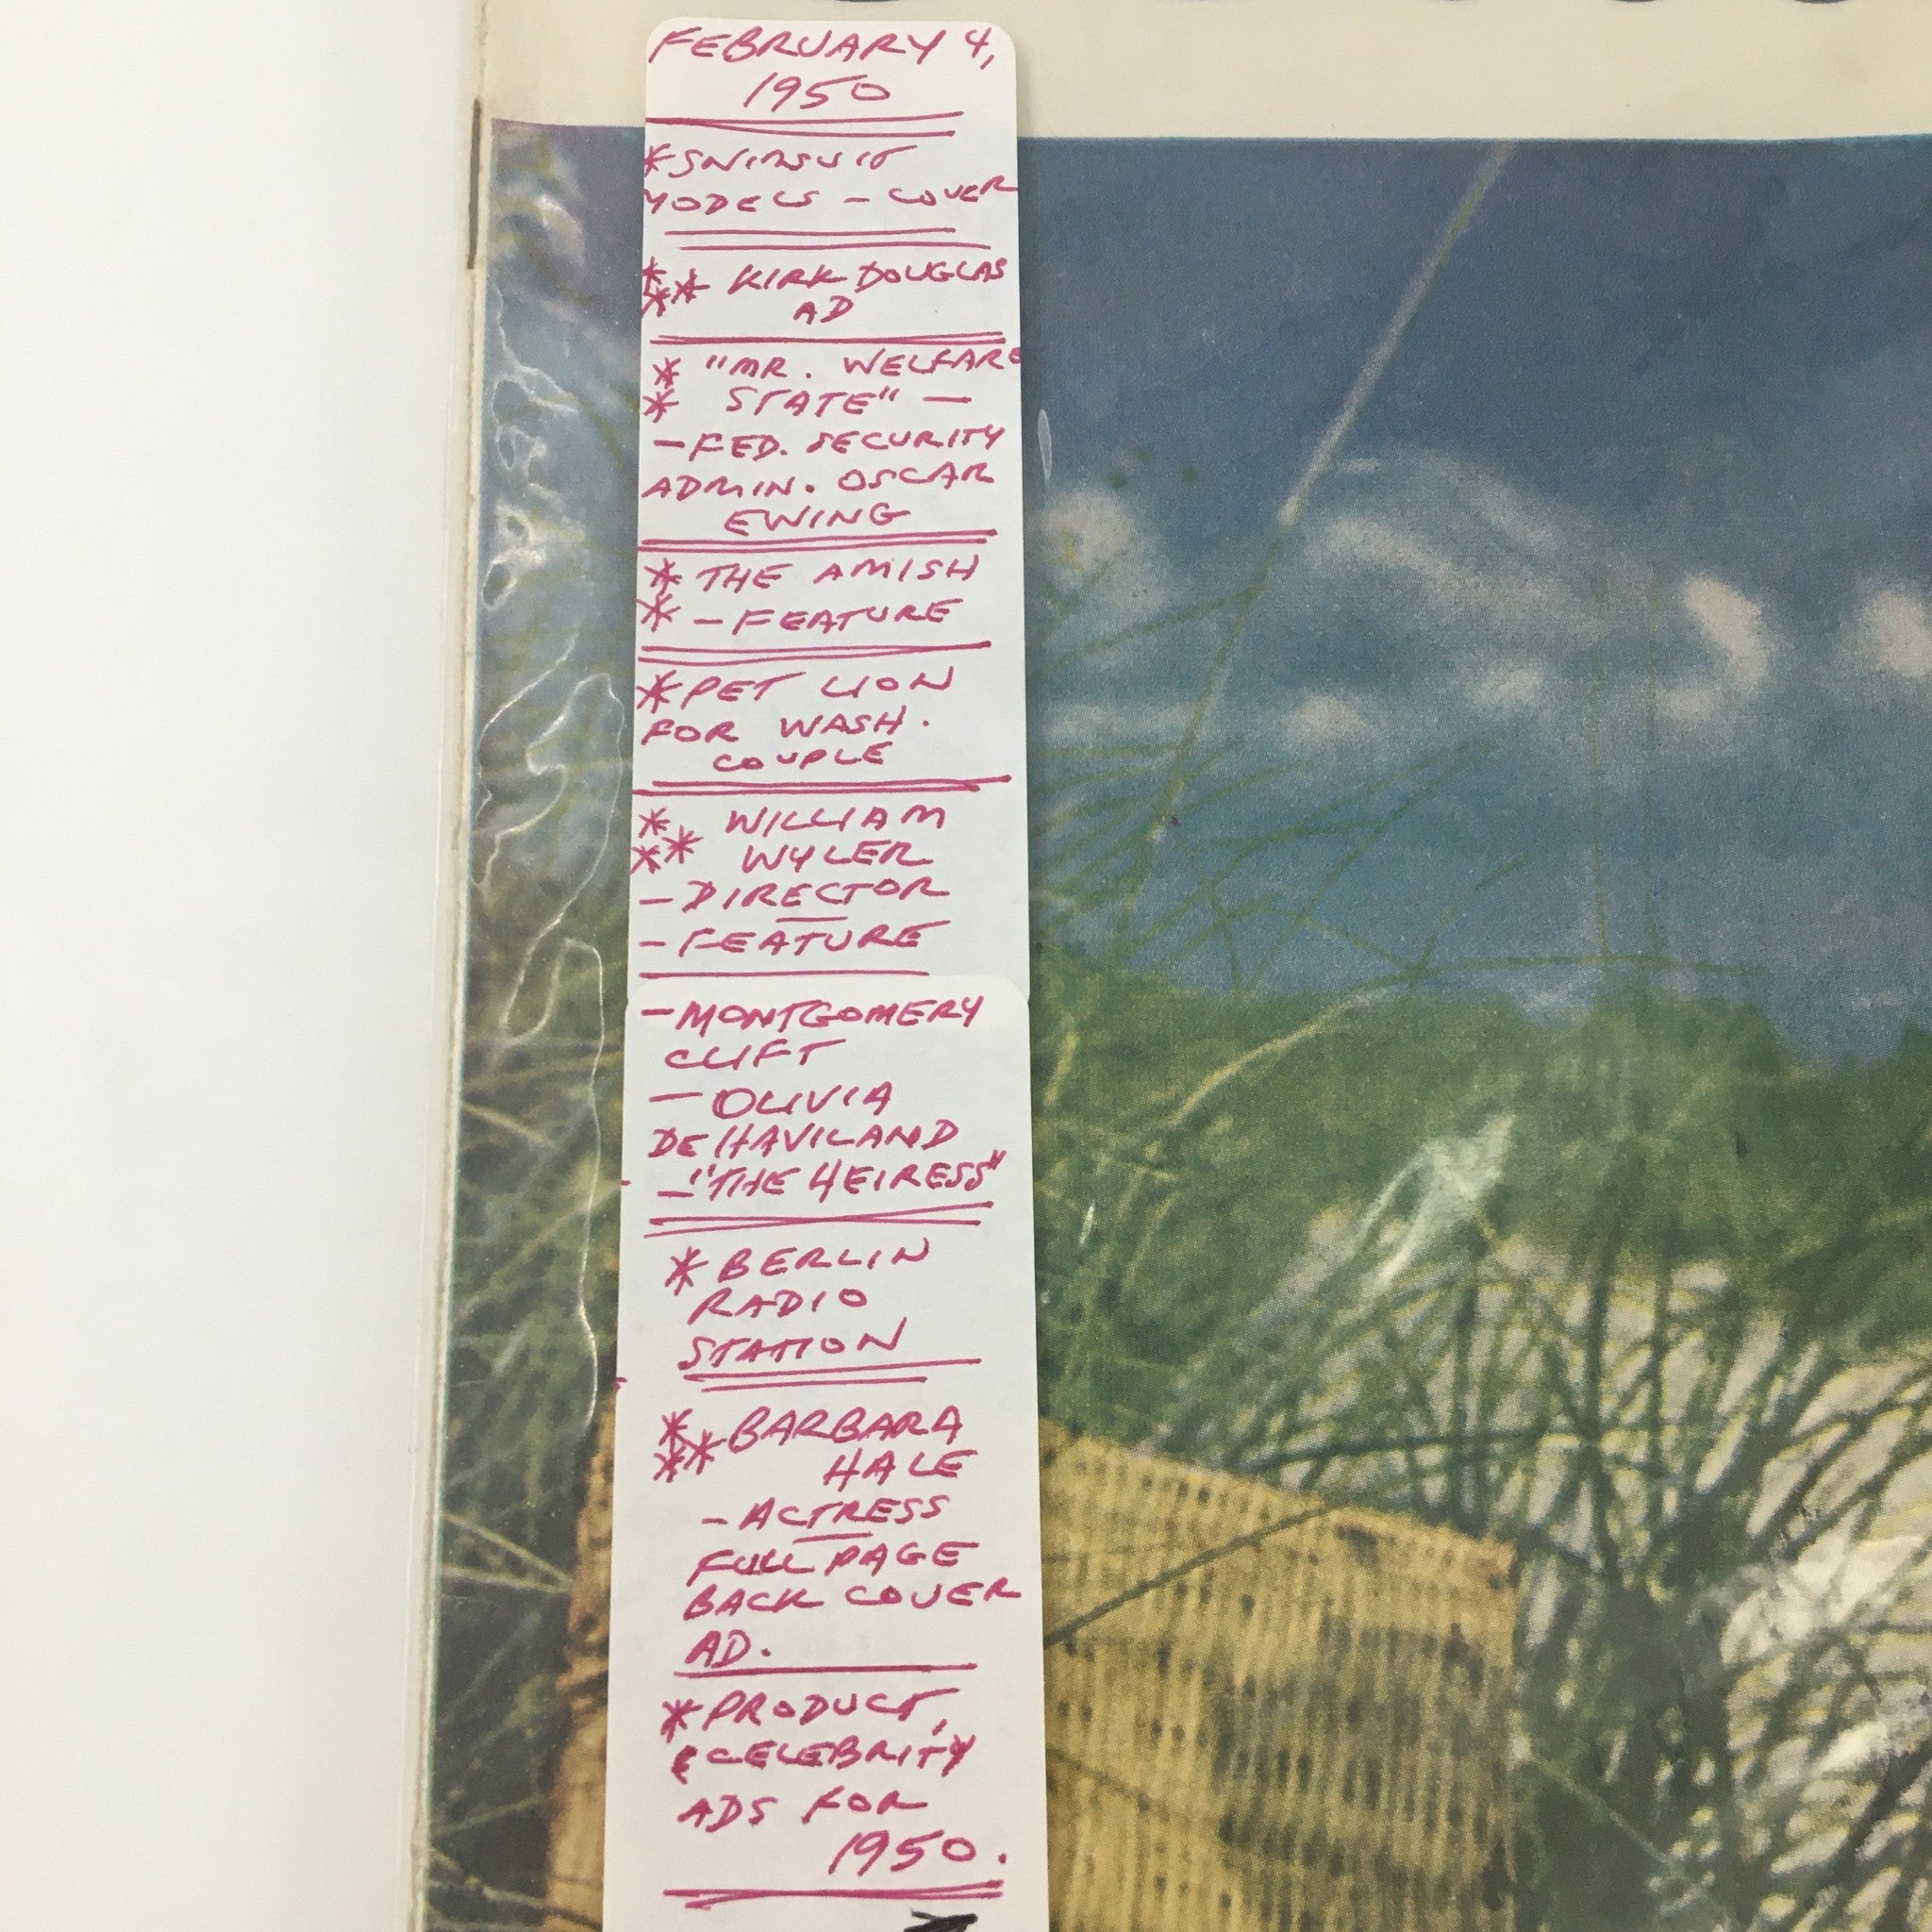 FEBRUARY 4,
1950
*SWIMSUIT
MODELS - COVER
*** KIRK DOUGLAS
AD
* "MR. WELFARE
* STATE" -
- FED. SECURITY
ADMIN. OSCAR
EWING
* THE AMISH
* - FEATURE
*PET LION
FOR WASH.
COUPLE
* WILLIAM
** WYLER
- DIRECTOR
- FEATURE
- MONTGOMERY
CLIFT
- OLIVIA
DEHAVILAND
- "THE HEIRESS"
* BERLIN
RADIO
STATION
*** BARBARA
HALE
- ACTRESS
FULL PAGE
BACK COVER
AD.
*PRODUCT,
& CELEBRITY
ADS FOR
1950.